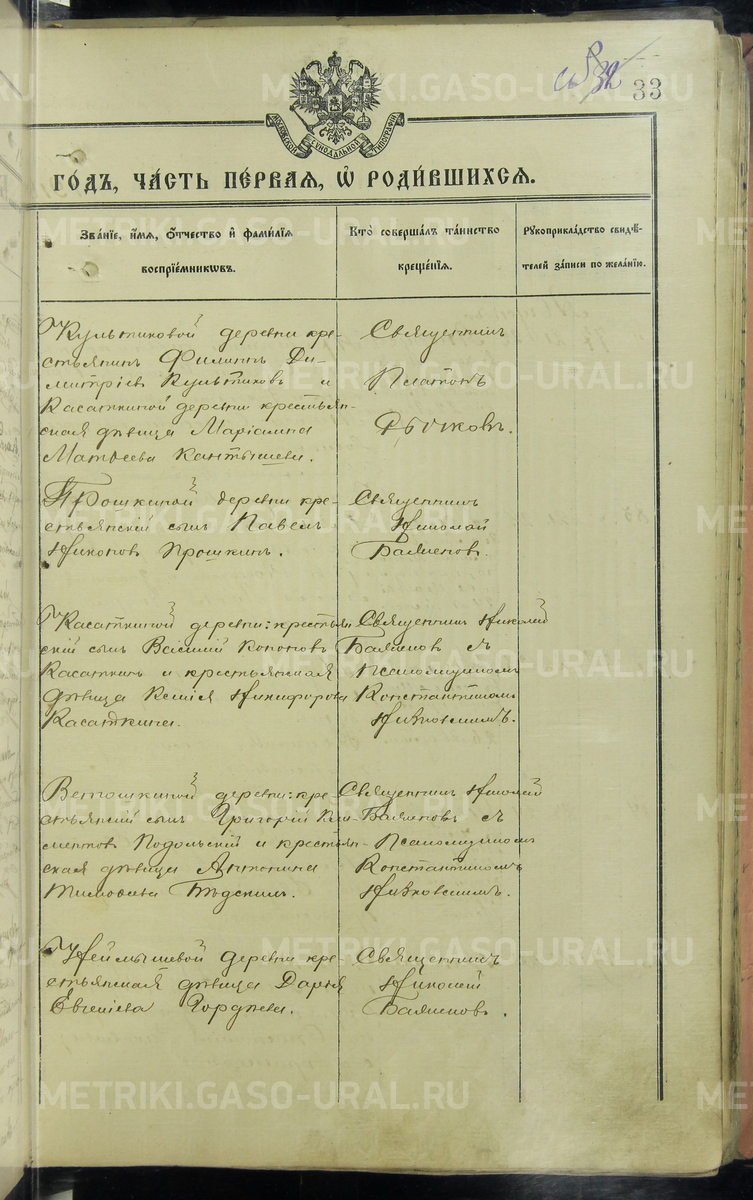 33
МОСКОВСКОЙ СѴНОДАЛЬНОЙ ТИПОГРАФІИ
ГО́ДЪ, ЧА́СТЬ ПЕ́РВАЯ, Ѽ РОДИ́ВШИХСЯ.
Зва́нїе, и́мя, ѻ҆́тчество и҆ фами́лїя
воспрїе́мниковъ.
Кто̀ соверша́лъ та́инство
креще́нїя.
Рꙋкоприкла́дство свидѣ́-
телей за́писи по жела́нїю.
Культиковой деревни кре-
стьянинъ Филиппъ Ди-
митріев Культиковъ и
Касаткиной деревни крестьян-
ская дѣвица Маріамна
Матѳеева
Священникъ
Платонъ
Прошкиной деревни кре-
стьянскій сынъ Павелъ
Никоновъ Прошкинъ.
Священникъ
Николай
Касаткиной деревни: крестьян-
скій сынъ Василій Кононовъ
Касаткинъ и крестьянская
дѣвица Ксенія Никифорова
Касаткина.
Священникъ Николай
съ
Псаломщикомъ
Константиномъ
Ветошкиной деревни: кре-
стьянскій сынъ Григорій Кли-
ментовъ Подольскій и крестьян-
ская дѣвица Антонина
Тимофеева
Священникъ Николай
съ
Псаломщикомъ
Константиномъ
Неймышевой деревни кре-
стьянская дѣвица Дарья
Евгеніева Гордѣева.
Священникъ
Николай
METRIKI.GASO-URAL.RU